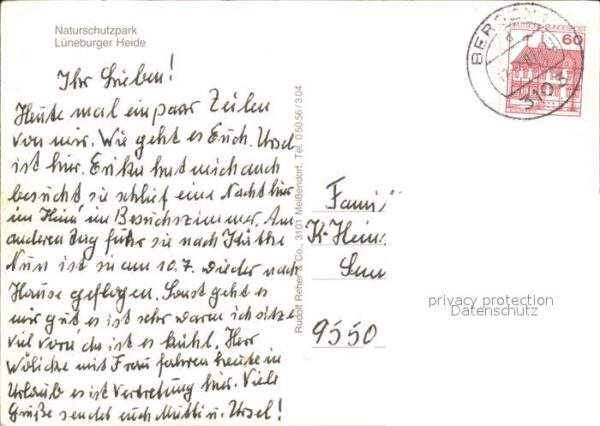 Naturschutzpark
Lüneburger Heide
Ihr Lieben!
Heute mal ein paar Zeilen
von mir. Wie geht es Euch. Ursel
ist hier. Erika hat mich auch
besucht sie schlief eine Nacht hier
im Heim im Besuchszimmer. Am
anderen Tag fuhr sie nach Käthe
Nun ist sie am 10.7. wieder nach
Hause geflogen. Sonst geht es
mir gut es ist sehr warm ich sitze
viel vorn da ist es kühl. Herr
Wölicke mit Frau fahren heute in
Urlaub es ist Vertretung hier. Viele
Grüße sendet euch Mutti u. Ursel!
Rudolf Reher & Co., 3101 Meißendorf, Tel. 05056/304
BERGEN
3103
DEUTSCHE BUNDESPOST
60
Fami
K-Heinz
9550
privacy protection
Datenschutz